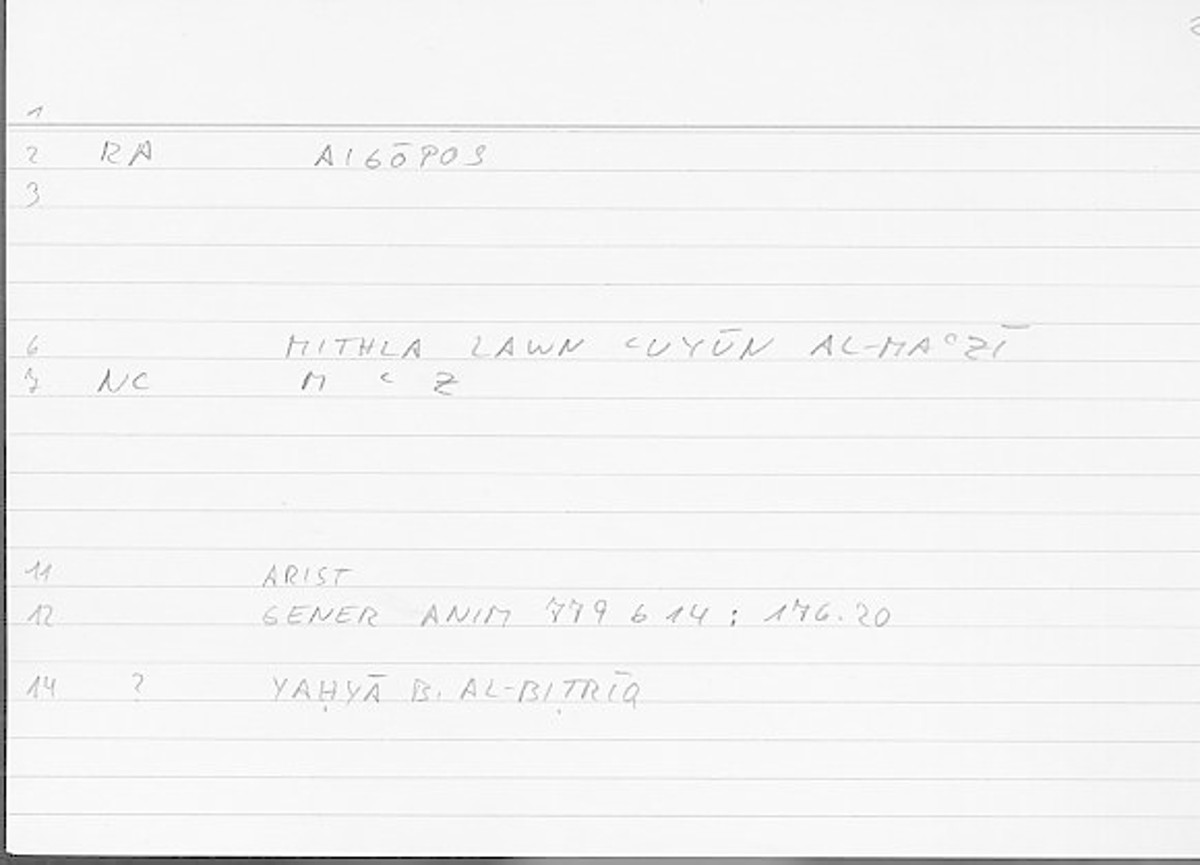 1
2 RA AIGŌPOS
3
6 MITHLA LAWN ʿUYŪN AL-MAʿZĪ
7 NC M ʿ Z
11 ARIST
12 GENER ANIM 779 b 14 : 176.20
14 ? YAḤYĀ B. AL-BIṬRĪQ